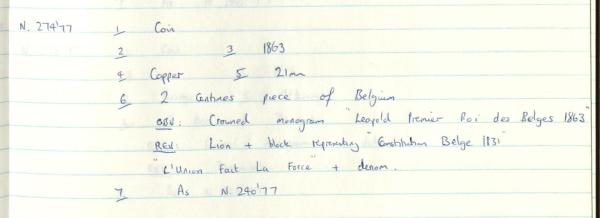 N. 274'77 1 Coin
2 3 1863
4 Copper 5 21mm
6 2 Centimes piece of Belgium
OBV: Crowned monogram "Leopold Premier Roi des Belges 1863"
REV: Lion + block representing "Constitution Belge 1831"
"L'Union Fait La Force" + denom.
7 As N. 240'77